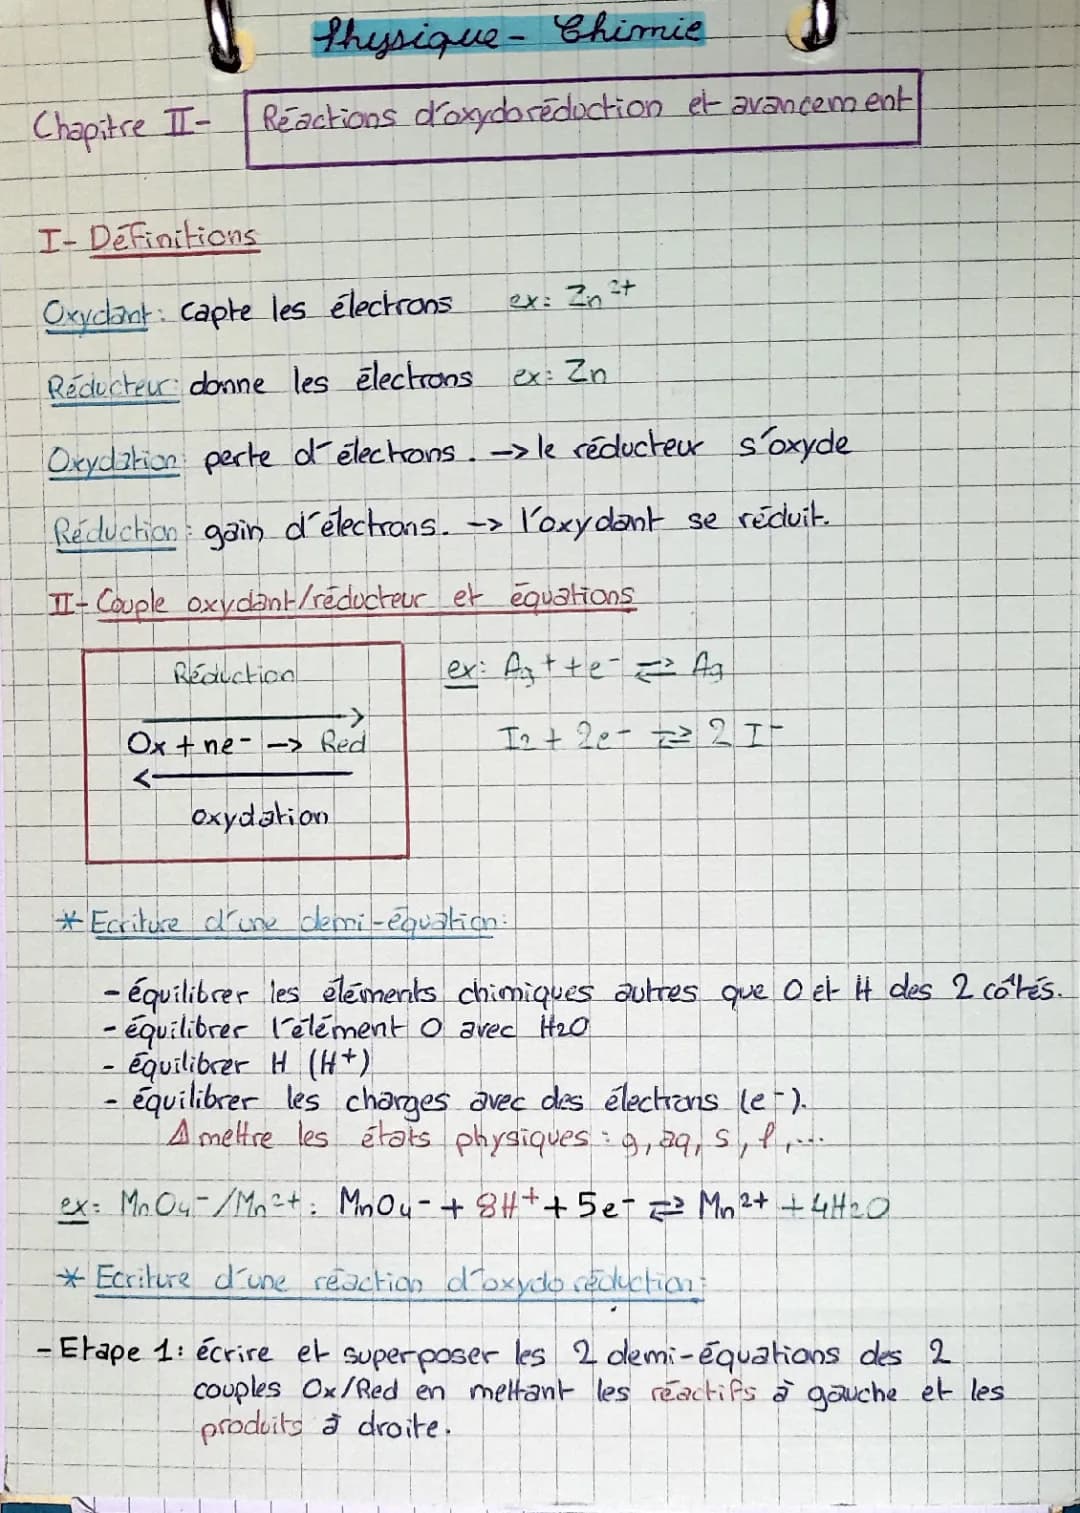 Physique - Chimie
Chapitre II- Réactions d'oxydoréduction et avancement
I- Définitions
Oxydant: capte les électrons ex: Zn²⁺
Réducteur: donne les électrons ex: Zn
Oxydation: perte d'électrons. -> le réducteur s'oxyde
Réduction: gain d'électrons. -> l'oxydant se réduit.
II- Couple oxydant/réducteur et équations
Réduction
Ox + ne⁻ -> Red
oxydation
ex: Ag⁺ + e⁻ ⇌ Ag
I₂ + 2e⁻ ⇌ 2 I⁻
* Ecriture d'une demi-équation:
- équilibrer les éléments chimiques autres que O et H des 2 côtés.
- équilibrer l'élément O avec H₂O
- équilibrer H (H⁺)
- équilibrer les charges avec des électrons (e⁻).
⚠ mettre les états physiques : g, aq, s, l,...
ex: MnO₄⁻/Mn²⁺: MnO₄⁻ + 8H⁺ + 5e⁻ ⇌ Mn²⁺ + 4H₂O
* Ecriture d'une réaction d'oxydoréduction:
- Etape 1: écrire et superposer les 2 demi-équations des 2
couples Ox/Red en mettant les réactifs à gauche et les
produits à droite.